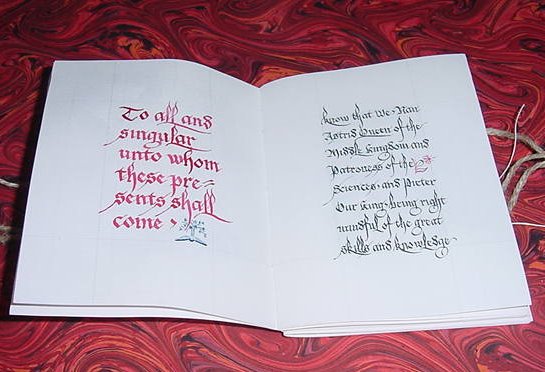 To all and
singular
unto whom
these pre=
sents shall
come ·
know that we Nan
Astrid Queen of the
Middle Kingdom and
Patroness of the
Sciences and Pieter
Our King being right
mindful of the great
skills and knowledge